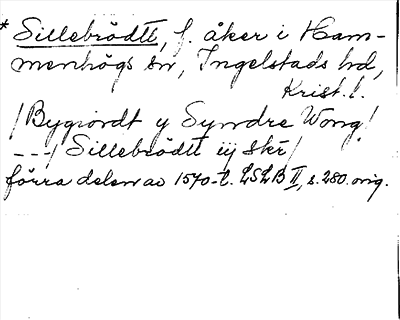 * Sillebrödtt, f. åker i Ham-
menhögs sn, Ingelstads hd,
Krist. l.
/ Bygiordt y Syndre Wong!
---/ Sillebrödtt iij Skr /
förra delen av 1570-t. LSLB II, s. 280. orig.